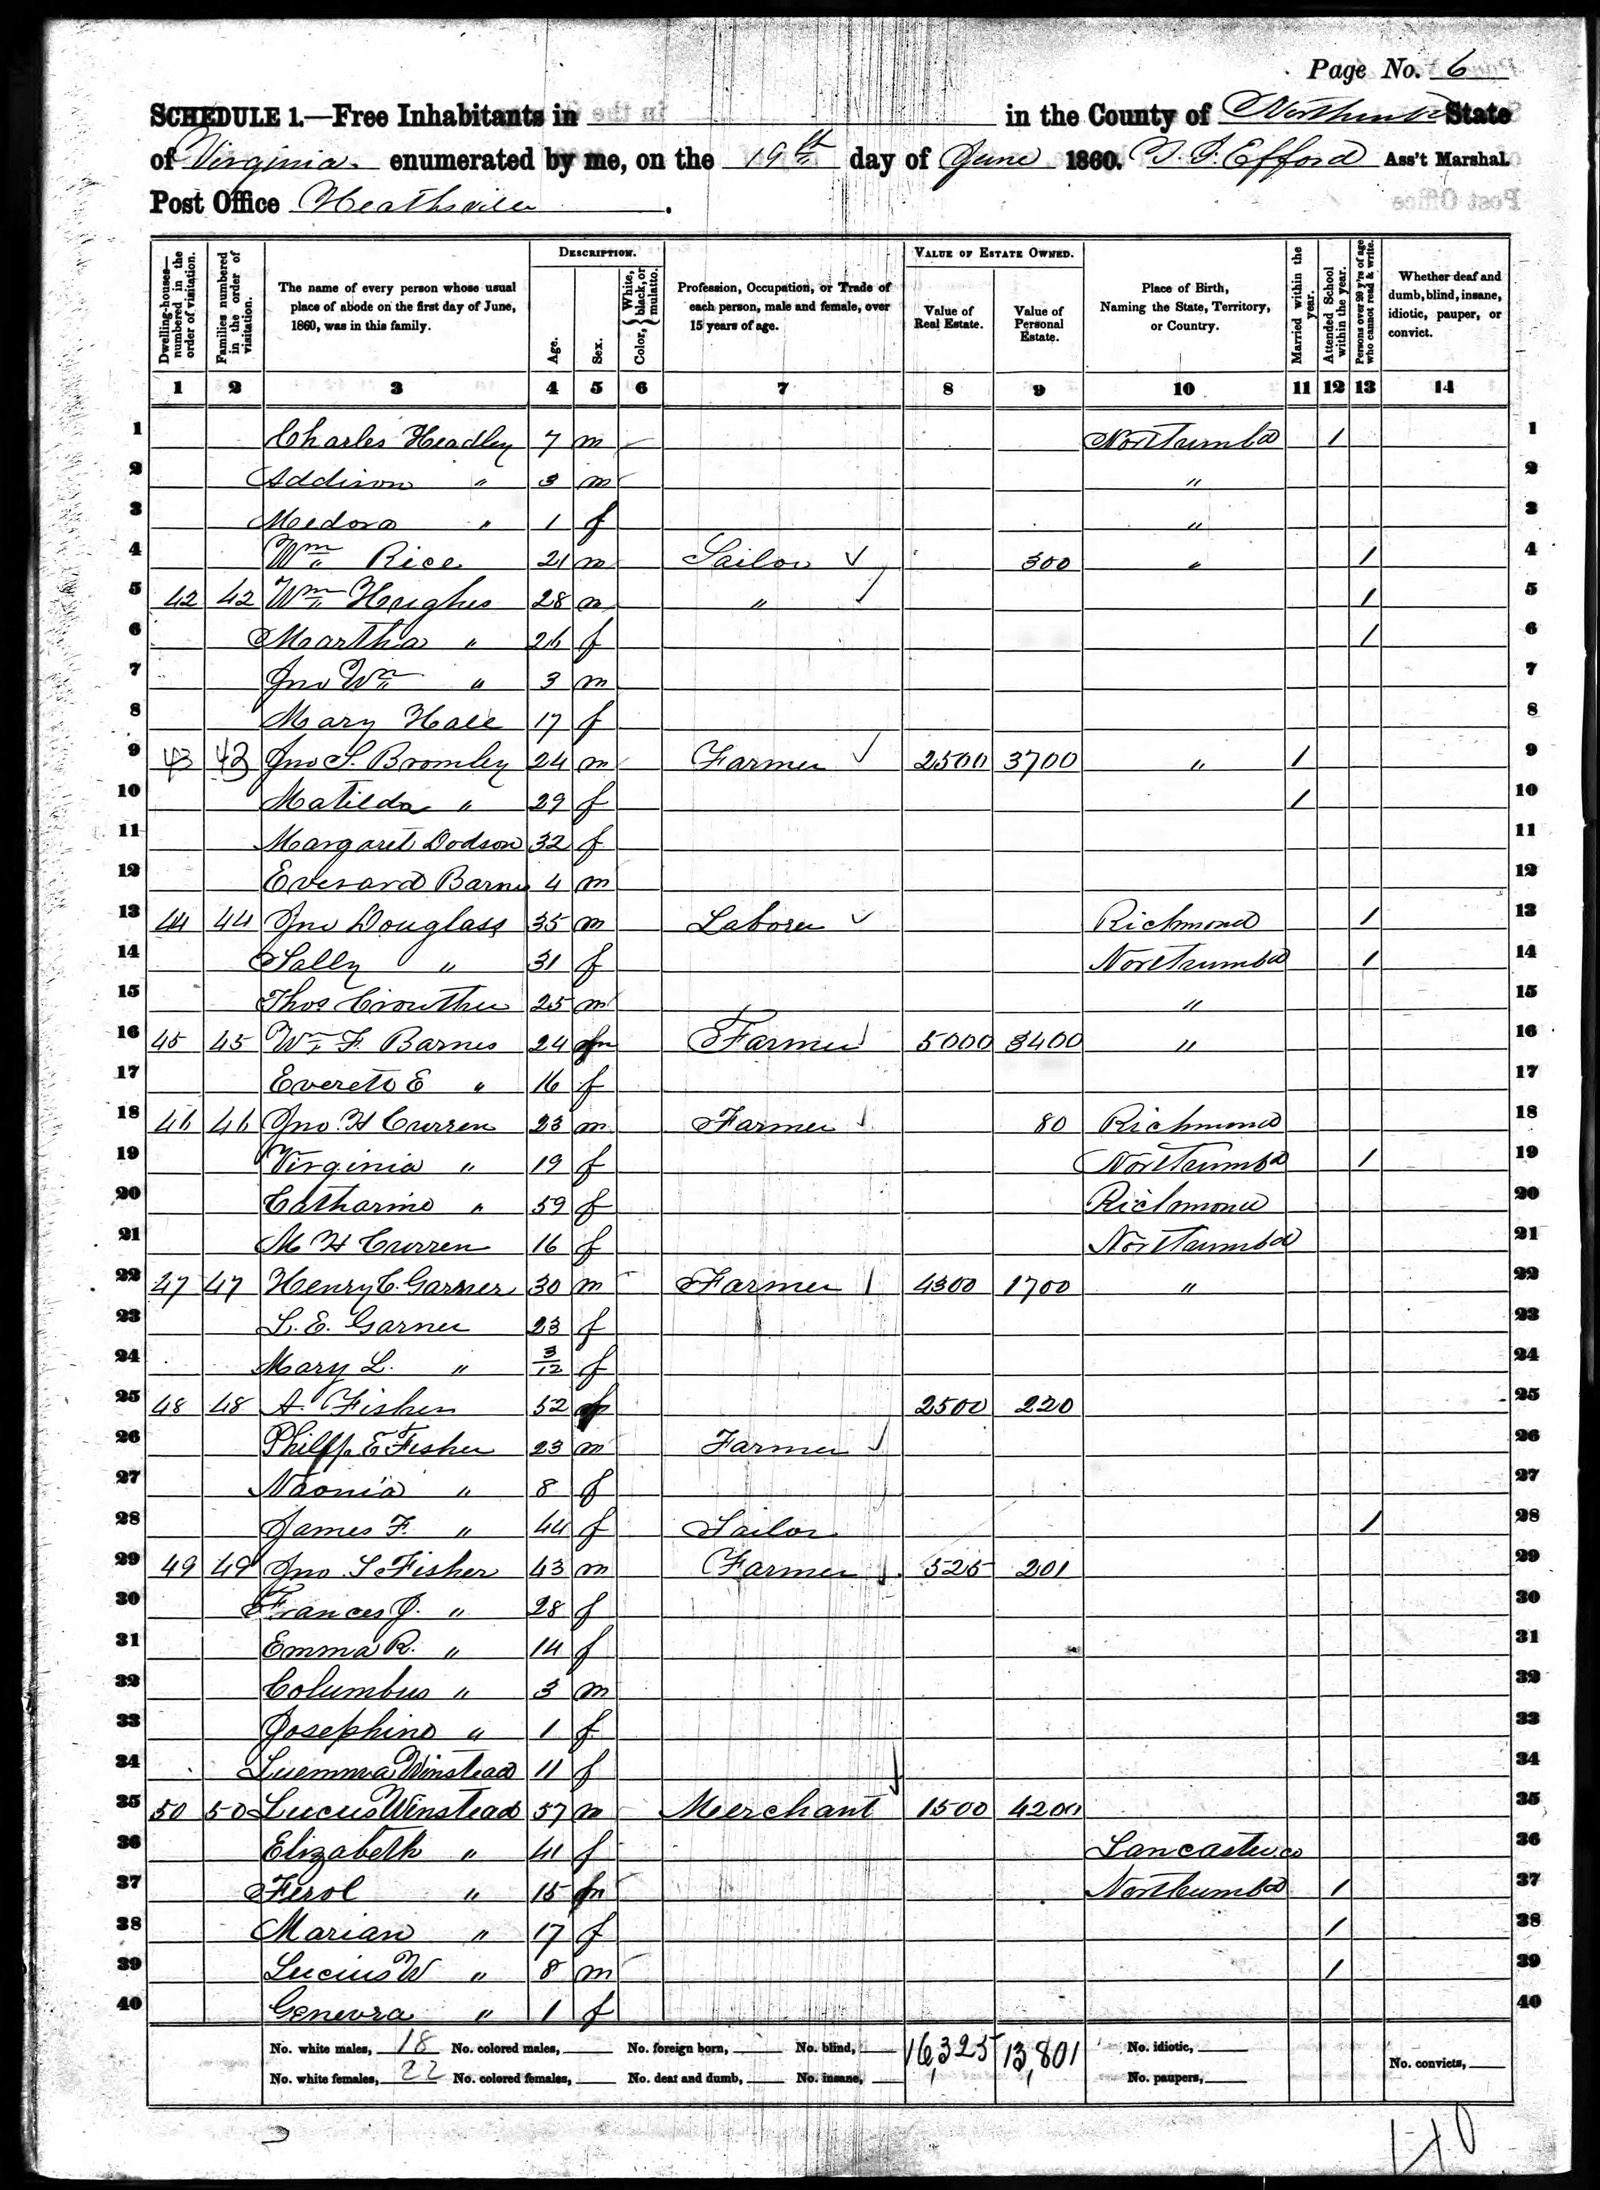 Page No. 6
SCHEDULE 1.—Free Inhabitants in in the County of Northumbd State
of Virginia enumerated by me, on the 19th day of June 1860. Efford Ass't Marshal.
Post Office Heathsville.
Dwelling-houses—numbered in the order of visitation. Families numbered in the order of visitation. The name of every person whose usual place of abode on the first day of June, 1860, was in this family. DESCRIPTION. Age. Sex. Color, { White, black, or mulatto. Profession, Occupation, or Trade of each person, male and female, over 15 years of age. VALUE OF ESTATE OWNED. Value of Real Estate. Value of Personal Estate. Place of Birth, Naming the State, Territory, or Country. Married within the year. Attended School within the year. Persons over 20 y'rs of age who cannot read & write. Whether deaf and dumb, blind, insane, idiotic, pauper, or convict.
1 2 3 4 5 6 7 8 9 10 11 12 13 14
1 Charles Headley 7 m Northumbd / 1
2 Addison " 3 m " 2
3 Medora " 1 f " 3
4 Wm Rice 21 m Sailor ✓ 300 " / 4
5 42 42 Wm Hughes 28 m " ✓ / 5
6 Martha " 26 f / 6
7 Jno Wm " 3 m 7
8 Mary Hale 17 f 8
9 43 43 Jno S. Bromley 24 m Farmer ✓ 2500 3700 " / 9
10 Matilda " 29 f / 10
11 Margaret Dodson 32 f 11
12 Everard Barnes 4 m 12
13 44 44 Jno Douglass 35 m Laborer ✓ Richmond / 13
14 Sally " 31 f Northumbd / 14
15 Thos Crowther 25 m " 15
16 45 45 Wm F. Barnes 24 m Farmer ✓ 5000 3400 " 16
17 Everett E " 16 f 17
18 46 46 Jno. H Curren 23 m Farmer ✓ 80 Richmond 18
19 Virginia " 19 f Northumbd / 19
20 Catharine " 59 f Richmond 20
21 M H Curren 16 f Northumbd 21
22 27 47 Henry C. Garner 30 m Farmer ✓ 4300 1700 " 22
23 L. E. Garner 23 f 23
24 Mary L. " 3/12 f 24
25 48 48 A. Fisher 52 f 2500 220 25
26 Philip E Fisher 23 m Farmer ✓ 26
27 Naonia " 8 f 27
28 James F. " 44 f Sailor / 28
29 49 49 Jno. S Fisher 43 m Farmer ✓ 525 201 29
30 Frances J. " 28 f 30
31 Emma R. " 14 f 31
32 Columbus " 3 m 32
33 Josephine " 1 f 33
34 Luemma Winstead 11 f 34
35 50 50 Lucius Winstead 57 m Merchant ✓ 1500 4200 35
36 Elizabeth " 41 f Lancaster co 36
37 Ferol " 15 m Northumbd / 37
38 Marian " 17 f / 38
39 Lucius W " 8 m / 39
40 Genevra " 1 f 40
No. white males, 18 No. colored males, No. foreign born, No. blind, 16,325 13,801 No. idiotic,
No. white females, 22 No. colored females, No. deaf and dumb, No. insane, No. paupers, No. convicts,
40